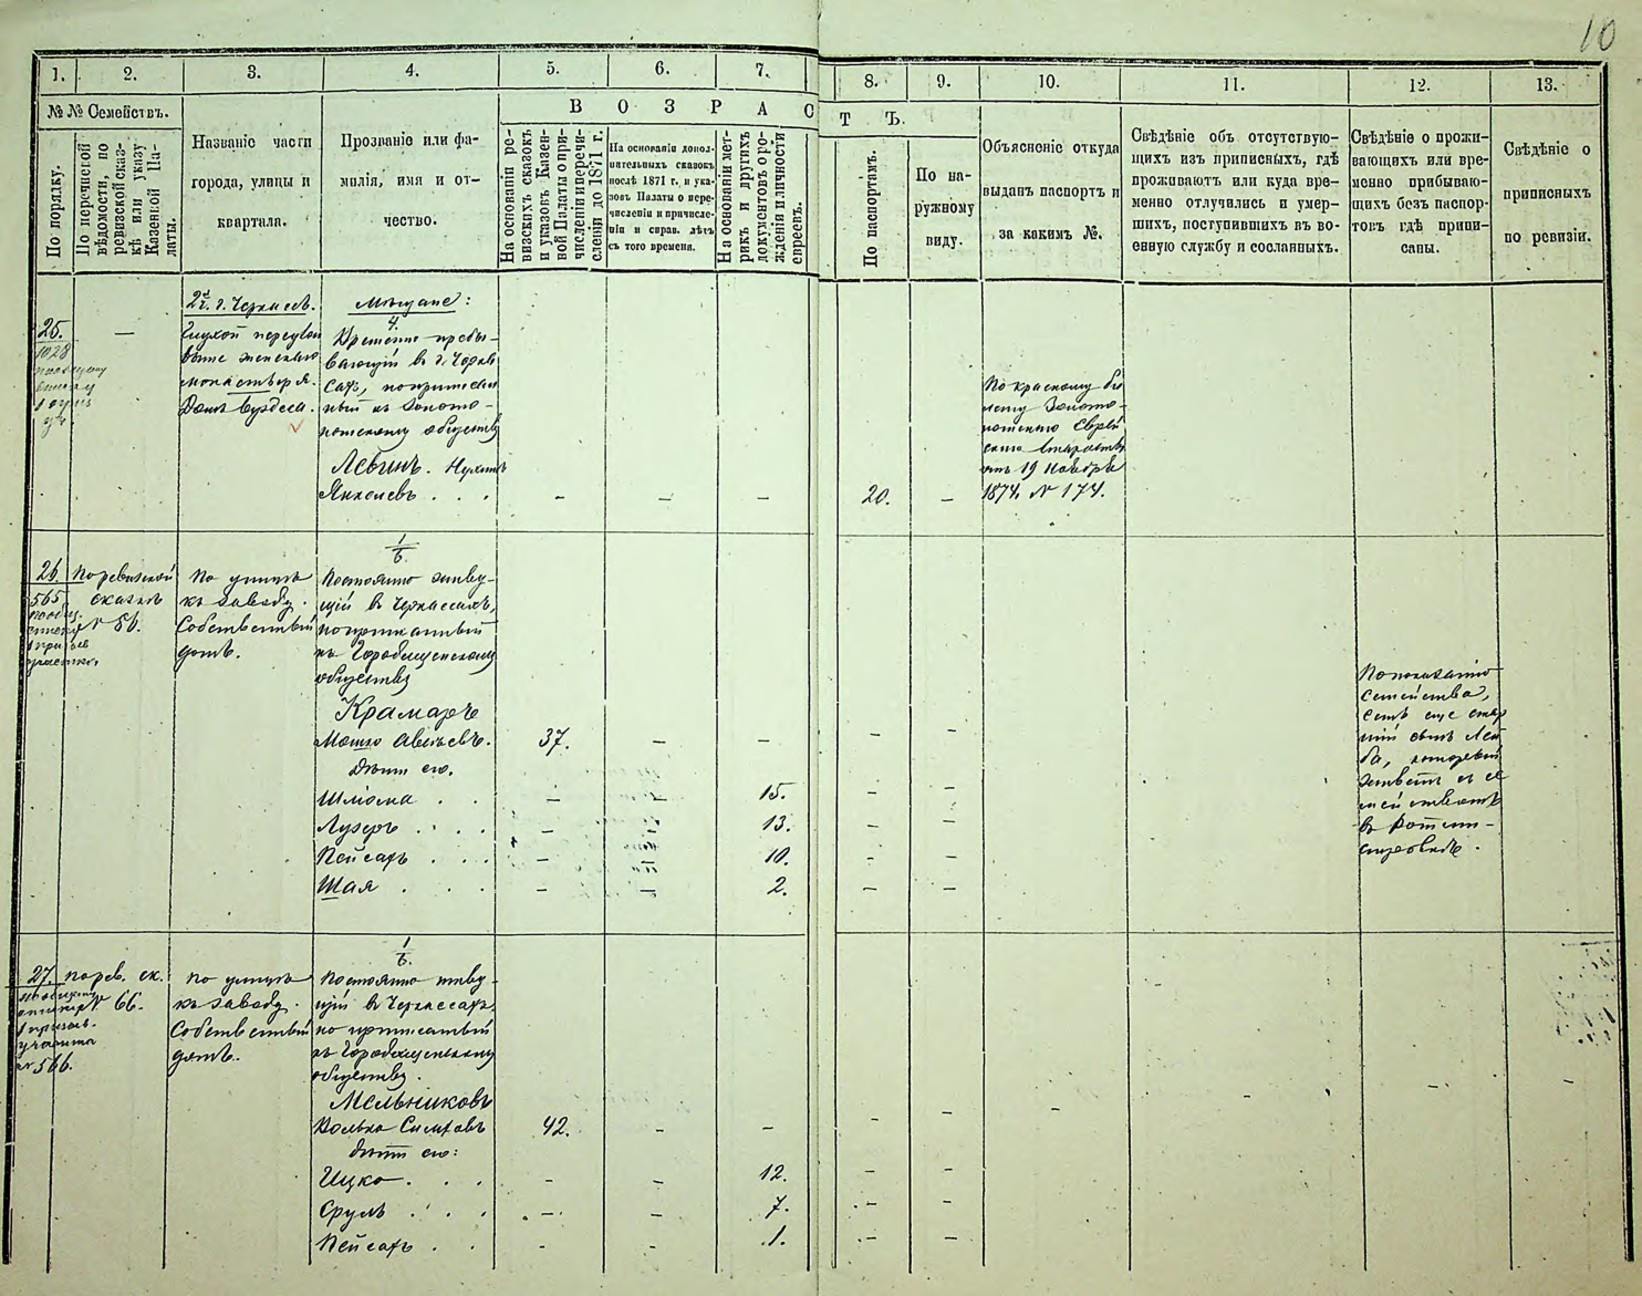 10
1. 2. 3. 4. 5. 6. 7. 8. 9. 10. 11. 12. 13.
№№ Семействъ.
По порядку.
По перечисной
вѣдомости, по
ревизской сказ-
кѣ или указу
Казенной Па-
латы.
Названіе части
города, улицы и
квартала.
Прозваніе или фа-
милія, имя и от-
чество.
ВОЗРАСТЪ.
На основаніи ре-
визскихъ сказокъ
и указовъ Казен-
ной Палаты о при-
численіи и перечи-
сленіи до 1871 г.
На основаніи допол-
нительныхъ сказокъ
послѣ 1871 г., и ука-
зовъ Палаты о пере-
численіи и причисле-
ніи и справ. лѣтъ
съ того времени.
На основаніи мет-
рикъ и другихъ
документовъ о рож-
деніи и личности
евреевъ.
По паспортамъ.
По на-
ружному
виду.
Объясненіе откуда
выданъ паспортъ и
за какимъ №.
Свѣдѣніе объ отсутствую-
щихъ изъ приписныхъ, гдѣ
проживаютъ или куда вре-
менно отлучились и умер-
шихъ, поступившихъ въ во-
енную службу и сосланныхъ.
Свѣдѣніе о прожи-
вающихъ или вре-
менно прибываю-
щихъ безъ паспор-
товъ гдѣ припи-
саны.
Свѣдѣніе о
приписныхъ
по ревизіи.
25.
1028
—
2 ч. г. Черкассъ.
Глухой переулокъ
монастыря.
Домъ
Мѣщане:
4.
Временно пребы-
вающій въ г. Черкас-
сахъ, приписан-
ный къ Золото-
ношскому обществу
Левинъ. Нухимъ
Янкелевъ . . .
— — — 20. —
По красному би-
лету Золото-
ношскаго Еврей-
скаго Старосты
отъ 19 Ноября
1874. № 174.
26.
565
По ревизской
сказкѣ
№ 56.
По улицѣ
къ заводу.
Собственный
домъ.
1/6.
Постоянно живу-
щій въ Черкассахъ,
но приписанный
къ Городищенскому
обществу
Крамаръ
Мошко Авельевъ. 37. — — — —
Дѣти его.
Шлiома . . — — 15. — —
Лузеръ . . . . — — 13. — —
Пейсахъ . . . — — 10. — —
Шая . . . — — 2. — —
По показанію
семейства,
есть еще стар-
шій сынъ Лей-
ба, который
живетъ съ се-
мействомъ
въ Ротми-
стровкѣ.
27.
по общему
списку
1 призыв.
участка
№ 566.
По рев. ск.
№ 66.
По улицѣ
къ заводу.
Собственный
домъ.
1/6.
Постоянно живу-
щій въ Черкассахъ
но приписанный
къ Городищенскому
обществу.
Мельниковъ
Волько Симховъ 42. — — — — — — — —
дѣти его:
Ицко . . . — — 12. — —
Сруль . . . — — 7. — —
Пейсахъ . . — — 1. — —